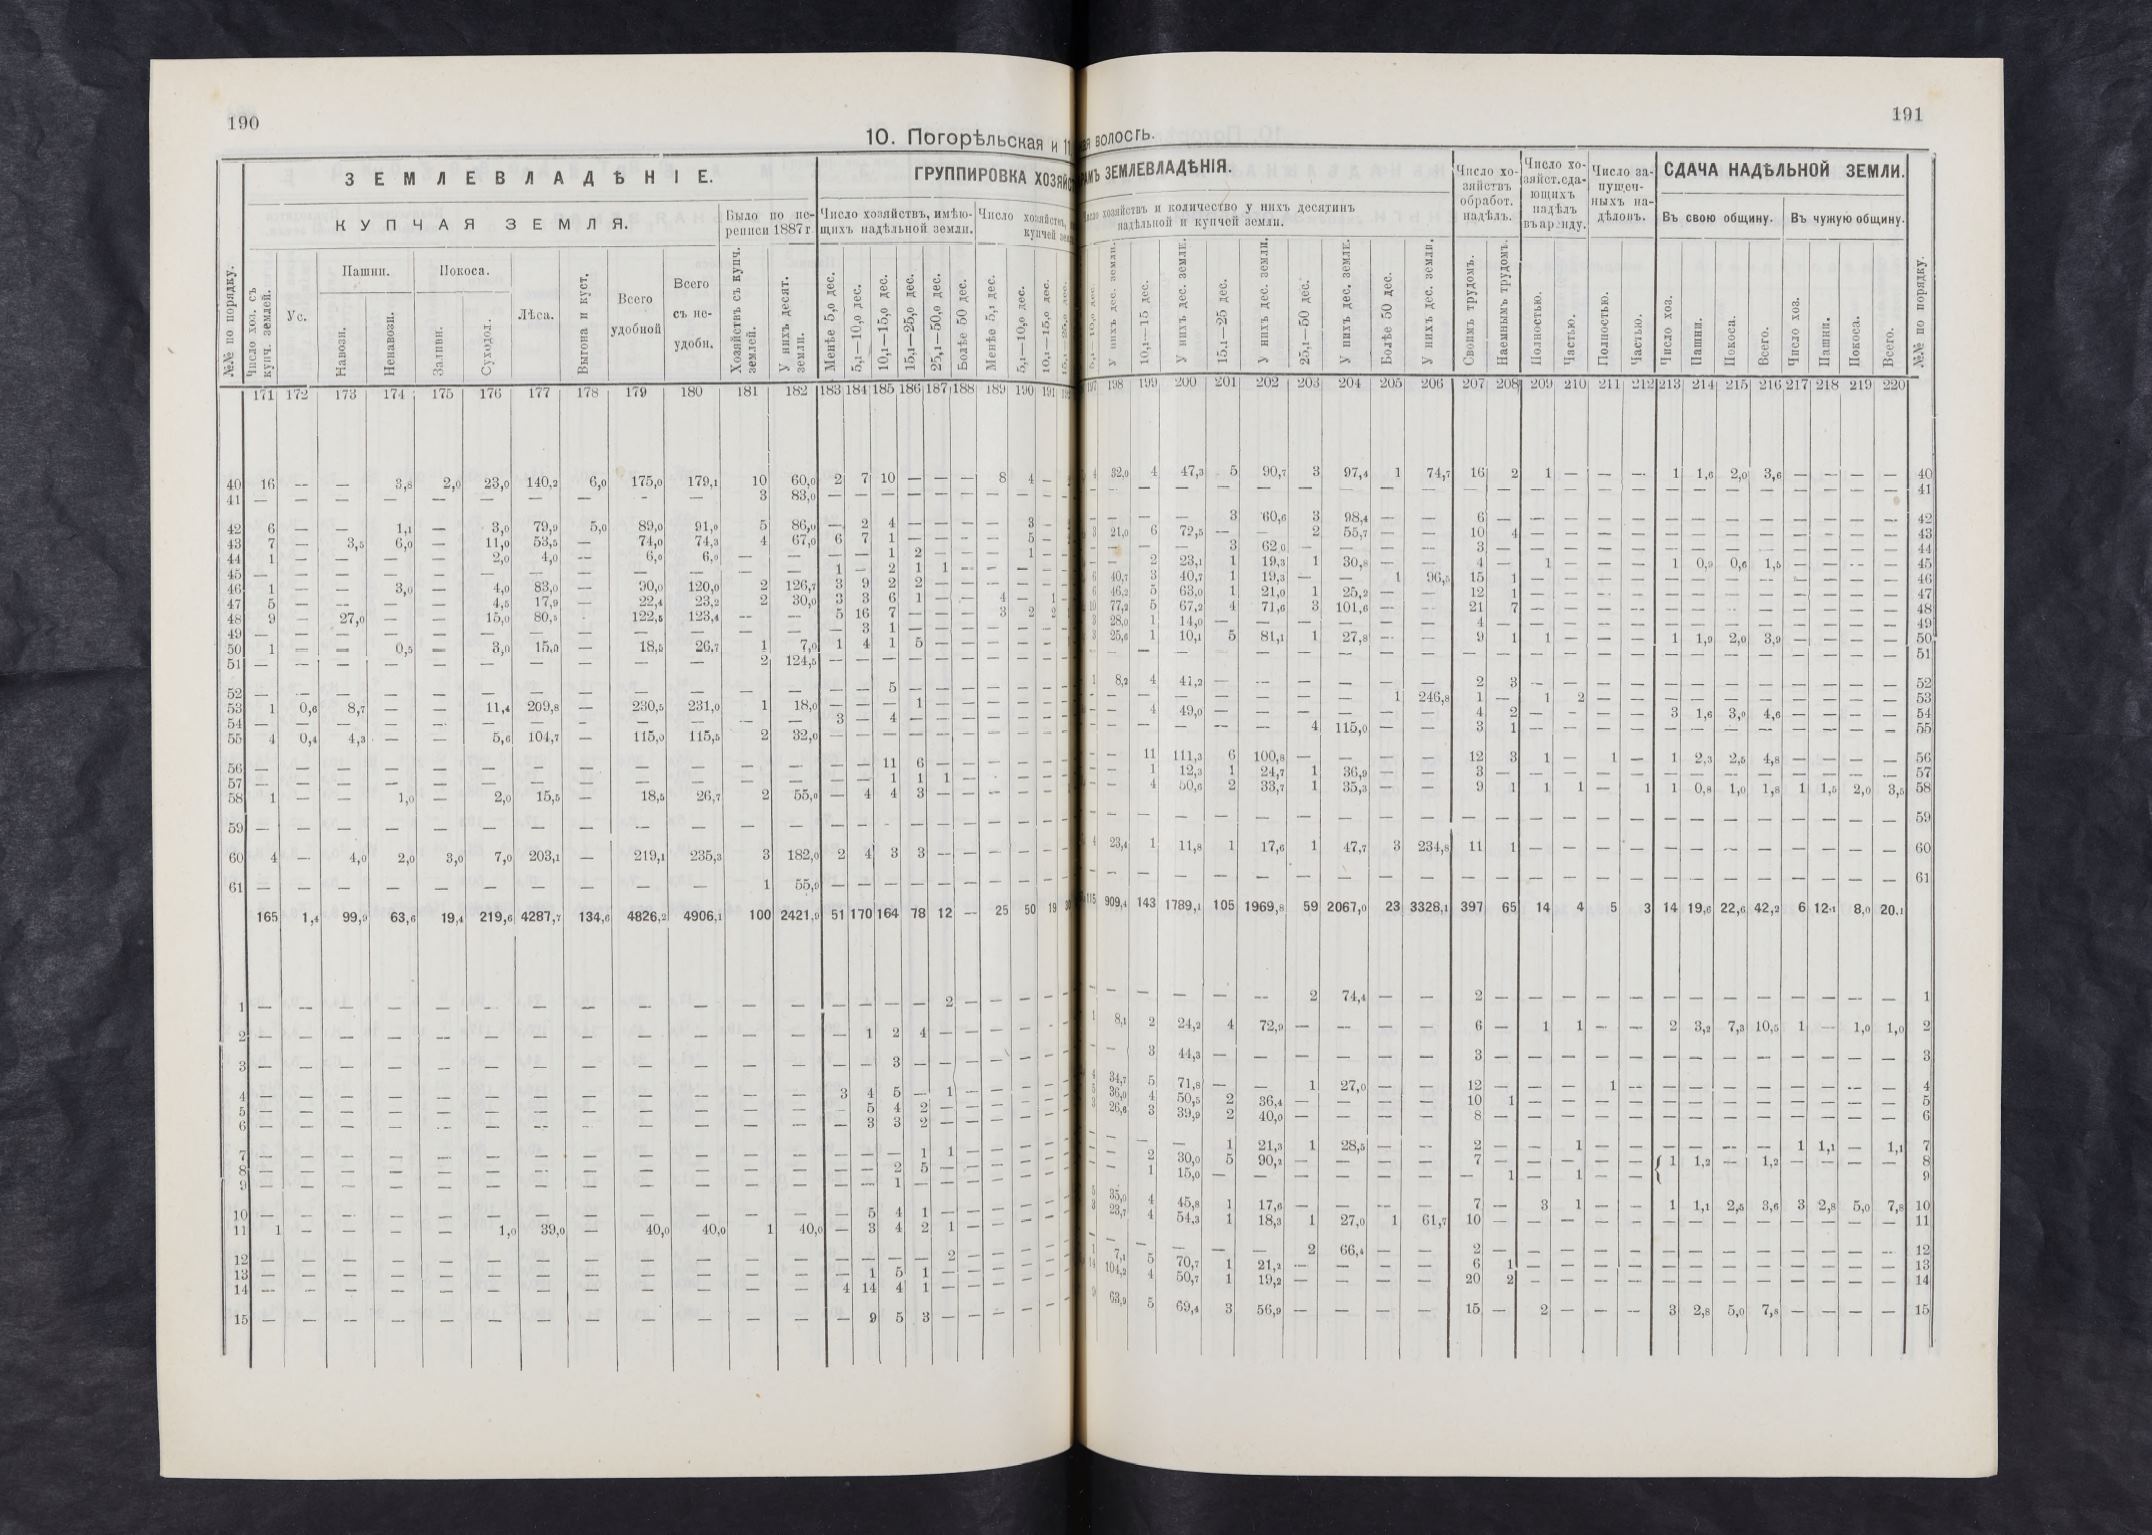 190
10. Погорѣльская и 11
З Е М Л Е В Л А Д Ѣ Н І Е.
ГРУППИРОВКА ХОЗЯЙС
К У П Ч А Я З Е М Л Я.
Было по пе-
реписи 1887 г.
Число хозяйствъ, имѣю-
щихъ надѣльной земли.
Число хозяйствъ,
купчей
№№ по порядку.
Число хоз. съ купч. землей.
Ус.
Пашни.
Навозн.
Ненавозн.
Покоса.
Заливн.
Суходол.
Лѣса.
Выгона и куст.
Всего удобной
Всего съ не- удобн.
Хозяйствъ съ купч. землей.
У нихъ десят. земли.
Менѣе 5,0 дес.
5,1—10,0 дес.
10,1—15,0 дес.
15,1—25,0 дес.
25,1—50,0 дес.
Болѣе 50 дес.
Менѣе 5,1 дес.
5,1—10,0 дес.
10,1—15,0 дес.
171 172 173 174 175 176 177 178 179 180 181 182 183 184 185 186 187 188 189 190 191
40 16 — — 3,8 2,0 23,0 140,2 6,0 175,0 179,1 10 60,0 2 7 10 — — — 8 4 —
41 — — — — — — — — - — 3 83,0
42 6 — — 1,1 — 3,0 79,9 5,0 89,0 91,0 5 86,0 — 2 4 — — — — 3 -
43 7 — 3,5 6,0 — 11,0 53,5 — 74,0 74,3 4 67,0 6 7 1 — — — — 5 -
44 1 — — — — 2,0 4,0 — 6,0 6,0 — — — — 1 2 — — — 1 —
45 — — — — — — — — — — — — 1 — 2 1 1 — — — —
46 1 — — 3,0 — 4,0 83,0 — 90,0 120,0 2 126,7 3 9 2 2 — — — — —
47 5 — — — — 4,5 17,9 — 22,4 23,2 2 30,0 3 3 6 1 — — 4 — 1
48 9 — 27,0 — — 15,0 80,5 — 122,5 123,4 — — 5 16 7 — — — 3 2 2
49 — — — — — — — — — — — — — 3 1 — — — — — —
50 1 — — 0,5 — 3,0 15,0 — 18,5 26,7 1 7,0 1 4 1 5 — — — — —
51 — — — — — — — — — — 2 124,5 — — — — — — — — —
52 — — — — — — — — — — — — — — 5 — — — — — —
53 1 0,6 8,7 — — 11,4 209,8 — 230,5 231,0 1 18,0 — — — 1 — — — — —
54 — — — — — — — — — — — — 3 — 4 — — — — — —
55 4 0,4 4,3 — — 5,6 104,7 — 115,0 115,5 2 32,0 — — — — — — — — —
56 — — — — — — — — — — — — — — 11 6 — — — — —
57 — — — — — — — — — — — — — — 1 1 1 — — — —
58 1 — — 1,0 — 2,0 15,5 — 18,5 26,7 2 55,0 — 4 4 3 — — — — —
59 — — — — — — — — — — — — — — — — — — — — —
60 4 — 4,0 2,0 3,0 7,0 203,1 — 219,1 235,3 3 182,0 2 4 3 3 — — — — —
61 — — — — — — — — — — 1 55,9 — — — — — — — — —
165 1,4 99,9 63,6 19,4 219,6 4287,7 134,6 4826,2 4906,1 100 2421,9 51 170 164 78 12 — 25 50 19
1 — — — — — — — — — — — — — — — — 2 — — — —
2 — — — — — — — — — — — — — 1 2 4 — — — — —
3 — — — — — — — — — — — — — — 3 — — — — — —
4 — — — — — — — — — — — — 3 4 5 — 1 — — — —
5 — — — — — — — — — — — — — 5 4 2 — — — — —
6 — — — — — — — — — — — — — 3 3 2 — — — — —
7 — — — — — — — — — — — — — — — 1 1 — — — —
8 — — — — — — — — — — — — — — 2 5 — — — — —
9 — — — — — — — — — — — — — — 1 — — — — — —
10 — — — — — — — — — — — — — 5 4 1 — — — — —
11 1 — — — — 1,0 39,0 — 40,0 40,0 1 40,0 — 3 4 2 1 — — — —
12 — — — — — — — — — — — — — — — — 2 — — — —
13 — — — — — — — — — — — — — 1 5 1 — — — — —
14 — — — — — — — — — — — — 4 14 4 1 — — — — —
15 — — — — — — — — — — — — — 9 5 3 — — — — —
191
ая волость.
РАМЪ ЗЕМЛЕВЛАДѢНІЯ.
хозяйствъ и количество у нихъ десятинъ
надѣльной и купчей земли.
Число хо-
зяйствъ
обработ.
надѣлъ.
Число хо-
зяйст. сда-
ющихъ
надѣлъ
въ аренду.
Число за-
пущен-
ныхъ на-
дѣловъ.
СДАЧА НАДѢЛЬНОЙ ЗЕМЛИ.
Въ свою общину.
Въ чужую общину.
У нихъ дес. земли.
10,1—15 дес.
У нихъ дес. земли.
15,1—25 дес.
У нихъ дес. земли.
25,1—50 дес.
У нихъ дес. земли.
Болѣе 50 дес.
У нихъ дес. земли.
Своимъ трудомъ.
Наемнымъ трудомъ.
Полностью.
Частью.
Полностью.
Частью.
Число хоз.
Пашни.
Покоса.
Всего.
Число хоз.
Пашни.
Покоса.
Всего.
№№ по порядку.
197 198 199 200 201 202 203 204 205 206 207 208 209 210 211 212 213 214 215 216 217 218 219 220
4 32,0 4 47,3 5 90,7 3 97,4 1 74,7 16 2 1 — — — 1 1,6 2,0 3,6 — — — — 40
— — — — — — — — — — — — — — — — — — — — — — — — 41
— — — — 3 60,6 3 98,4 — — 6 — — — — — — — — — — — — — 42
3 21,0 6 72,5 — — 2 55,7 — — 10 4 — — — — — — — — — — — — 43
— — — — 3 62,0 — — — — 3 — — — — — — — — — — — — — 44
— — 2 23,1 1 19,3 1 30,8 — — 4 — 1 — — — 1 0,9 0,6 1,5 — — — — 45
6 40,7 3 40,7 1 19,3 — — 1 96,5 15 1 — — — — — — — — — — — — 46
6 46,2 5 63,0 1 21,0 1 25,2 — — 12 1 — — — — — — — — — — — — 47
10 77,2 5 67,2 4 71,6 3 101,6 — — 21 7 — — — — — — — — — — — — 48
3 28,0 1 14,0 — — — — — — 4 — — — — — — — — — — — — — 49
3 25,6 1 10,1 5 81,1 1 27,8 — — 9 1 1 — — — 1 1,9 2,0 3,9 — — — — 50
— — — — — — — — — — — — — — — — — — — — — — — — 51
1 8,2 4 41,2 — — — — — — 2 3 — — — — — — — — — — — — 52
— — — — — — — — 1 246,8 1 — 1 2 — — — — — — — — — — 53
— — 4 49,0 — — — — — — 4 2 — — — — 3 1,6 3,0 4,6 — — — — 54
— — — — — — 4 115,0 — — 3 1 — — — — — — — — — — — — 55
— — 11 111,3 6 100,8 — — — — 12 3 1 — 1 — 1 2,3 2,5 4,8 — — — — 56
— — 1 12,3 1 24,7 1 36,9 — — 3 — — — — — — — — — — — — — 57
— — 4 50,6 2 33,7 1 35,3 — — 9 1 1 1 — 1 1 0,8 1,0 1,8 1 1,5 2,0 3,5 58
— — — — — — — — — — — — — — — — — — — — — — — — 59
4 23,4 1 11,8 1 17,6 1 47,7 3 234,8 11 1 — — — — — — — — — — — — 60
— — — — — — — — — — — — — — — — — — — — — — — — 61
115 909,4 143 1789,1 105 1969,8 59 2067,0 23 3328,1 397 65 14 4 5 3 14 19,6 22,6 42,2 6 12,1 8,0 20,1
— — — — — — 2 74,4 — — 2 — — — — — — — — — — — — — 1
1 8,1 2 24,2 4 72,9 — — — — 6 — 1 1 — — 2 3,2 7,3 10,5 1 — 1,0 1,0 2
— — 3 44,3 — — — — — — 3 — — — — — — — — — — — — — 3
4 34,7 5 71,8 — — 1 27,0 — — 12 — — — 1 — — — — — — — — — 4
5 36,0 4 50,5 2 36,4 — — — — 10 1 — — — — — — — — — — — — 5
3 26,6 3 39,9 2 40,0 — — — — 8 — — — — — — — — — — — — — 6
— — — — 1 21,3 1 28,5 — — 2 — — 1 — — — — — — 1 1,1 — 1,1 7
— — 2 30,0 5 90,2 — — — — 7 — — — — — { 1 1,2 — 1,2 — — — — 8
— — 1 15,0 — — — — — — — 1 — 1 — — 9
5 35,0 4 45,8 1 17,6 — — — — 7 — 3 1 — — 1 1,1 2,5 3,6 3 2,8 5,0 7,8 10
3 23,7 4 54,3 1 18,3 1 27,0 1 61,7 10 — — — — — — — — — — — — — 11
— — — — — — 2 66,4 — — 2 — — — — — — — — — — — — — 12
1 7,1 5 70,7 1 21,2 — — — — 6 1 — — — — — — — — — — — — 13
14 104,2 4 50,7 1 19,2 — — — — 20 2 — — — — — — — — — — — — 14
9 63,9 5 69,4 3 56,9 — — — — 15 — 2 — — — 3 2,8 5,0 7,8 — — — — 15